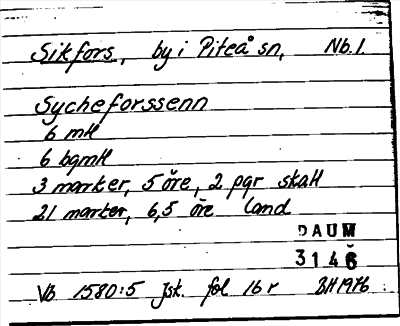 Sikfors, by i Piteå sn, Nb.l
Sycheforssenn
6 mtl
6 bgmtl
3 marker, 5 öre, 2 pgr skatt
21 marker, 6,5 öre land
DAUM
3146
Vb 1580:5 Jsk. fol 16 r BH 1976